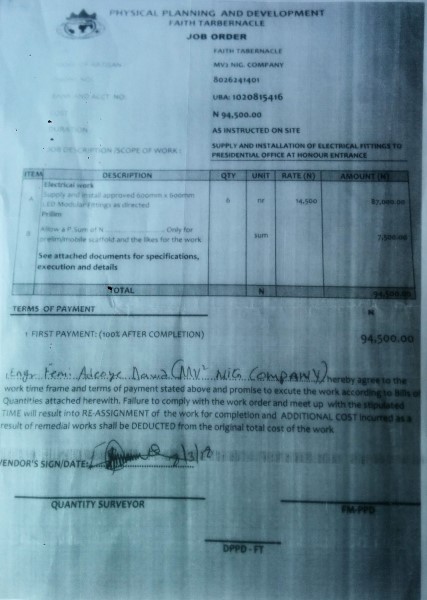 PHYSICAL PLANNING AND DEVELOPMENT
FAITH TARBERNACLE
JOB ORDER
FAITH TABERNACLE
MV2 NIG. COMPANY
8026241401
UBA: 1020815416
N 94,500.00
AS INSTRUCTED ON SITE
JOB DESCRIPTION /SCOPE OF WORK: SUPPLY AND INSTALLATION OF ELECTRICAL FITTINGS TO
PRESIDENTIAL OFFICE AT HONOUR ENTRANCE
ITEM DESCRIPTION QTY UNIT RATE (N) AMOUNT (N)
Electrical work
A Supply and install approved 600mm x 600mm 6 nr 14,500 87,000.00
LED Modular fittings as directed
B Allow a P. Sum of N Only for sum 7,500.00
scaffold and the likes for the work
See attached documents for specifications,
execution and details
TOTAL N 94,500.00
TERMS OF PAYMENT N
1 FIRST PAYMENT: (100% AFTER COMPLETION) 94,500.00
I, Engr. Femi Adeoye David (MV2 NIG COMPANY) hereby agree to the
work time frame and terms of payment stated above and promise to excute the work according to Bills of
Quantities attached herewith. Failure to comply with the work order and meet up with the stipulated
TIME will result into RE-ASSIGNMENT of the work for completion and ADDITIONAL COST incurred as a
result of remedial works shall be DEDUCTED from the original total cost of the work
VENDOR'S SIGN/DATE:
QUANTITY SURVEYOR FM-PPD
DPPD - FT